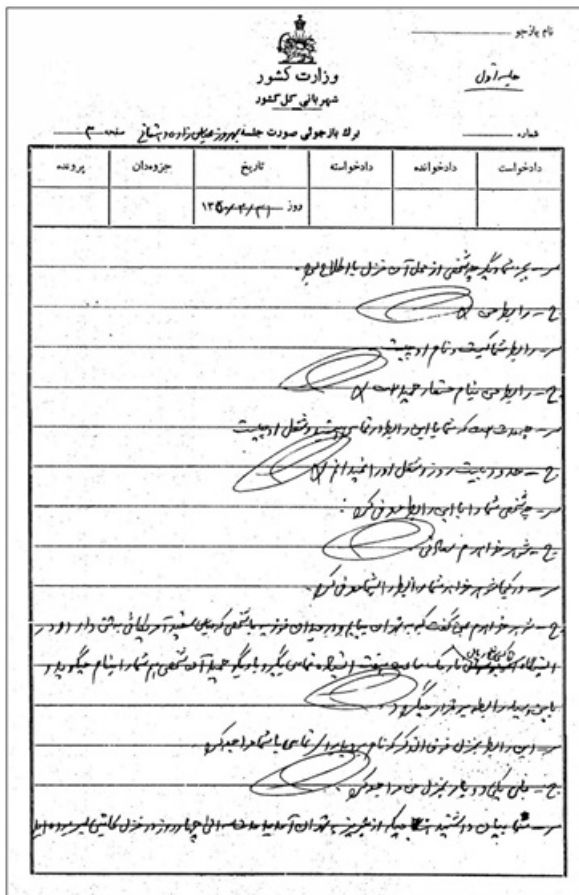 نام بازجو
وزارت کشور
جلسه اول
شهربانی کل کشور
شماره
برگ بازجوئی صورت جلسه بهروز صفحه ۳
دادخواست دادخوانده دادخواسته تاریخ جزوه‌دان پرونده
روز
س- بجز شما دیگر چه شخصی از محل آن منزل با اطلاع بود.
ج- رابط من
س- رابط شما کیست و نام او چیست
ج- رابط من بنام مستعار حمید است
س- چه مدت است که شما با این رابط در تماس و شغل او چیست
ج- حدود بیست روز و شغل او را نمیدانم
س- چه شخصی شما را با این رابط معرفی کرد.
ج- شوهر خواهرم
س- در کجا شوهر خواهر شما رابط را بشما معرفی کرد.
ج- شوهر خواهرم بمن گفت که به تهران بیایم و در میدان فوزیه با شخصی که سفید دارد در
ایستگاه ساعت هفت تماس بگیر و بگو حمید آن شخص هم شما را بنام میگوید و
باین وسیله رابطه برقرار میگردد.
س- این رابط بمنزل فوق الذکر که نام بردید برای تماس با شما مراجعه کرد.
ج- بلی یکی دو بار بمنزل من مراجعه کرد.
س- شما بیان داشتید از تبریز به تهران آمدید چهار روز در منزل بسر برده‌اید